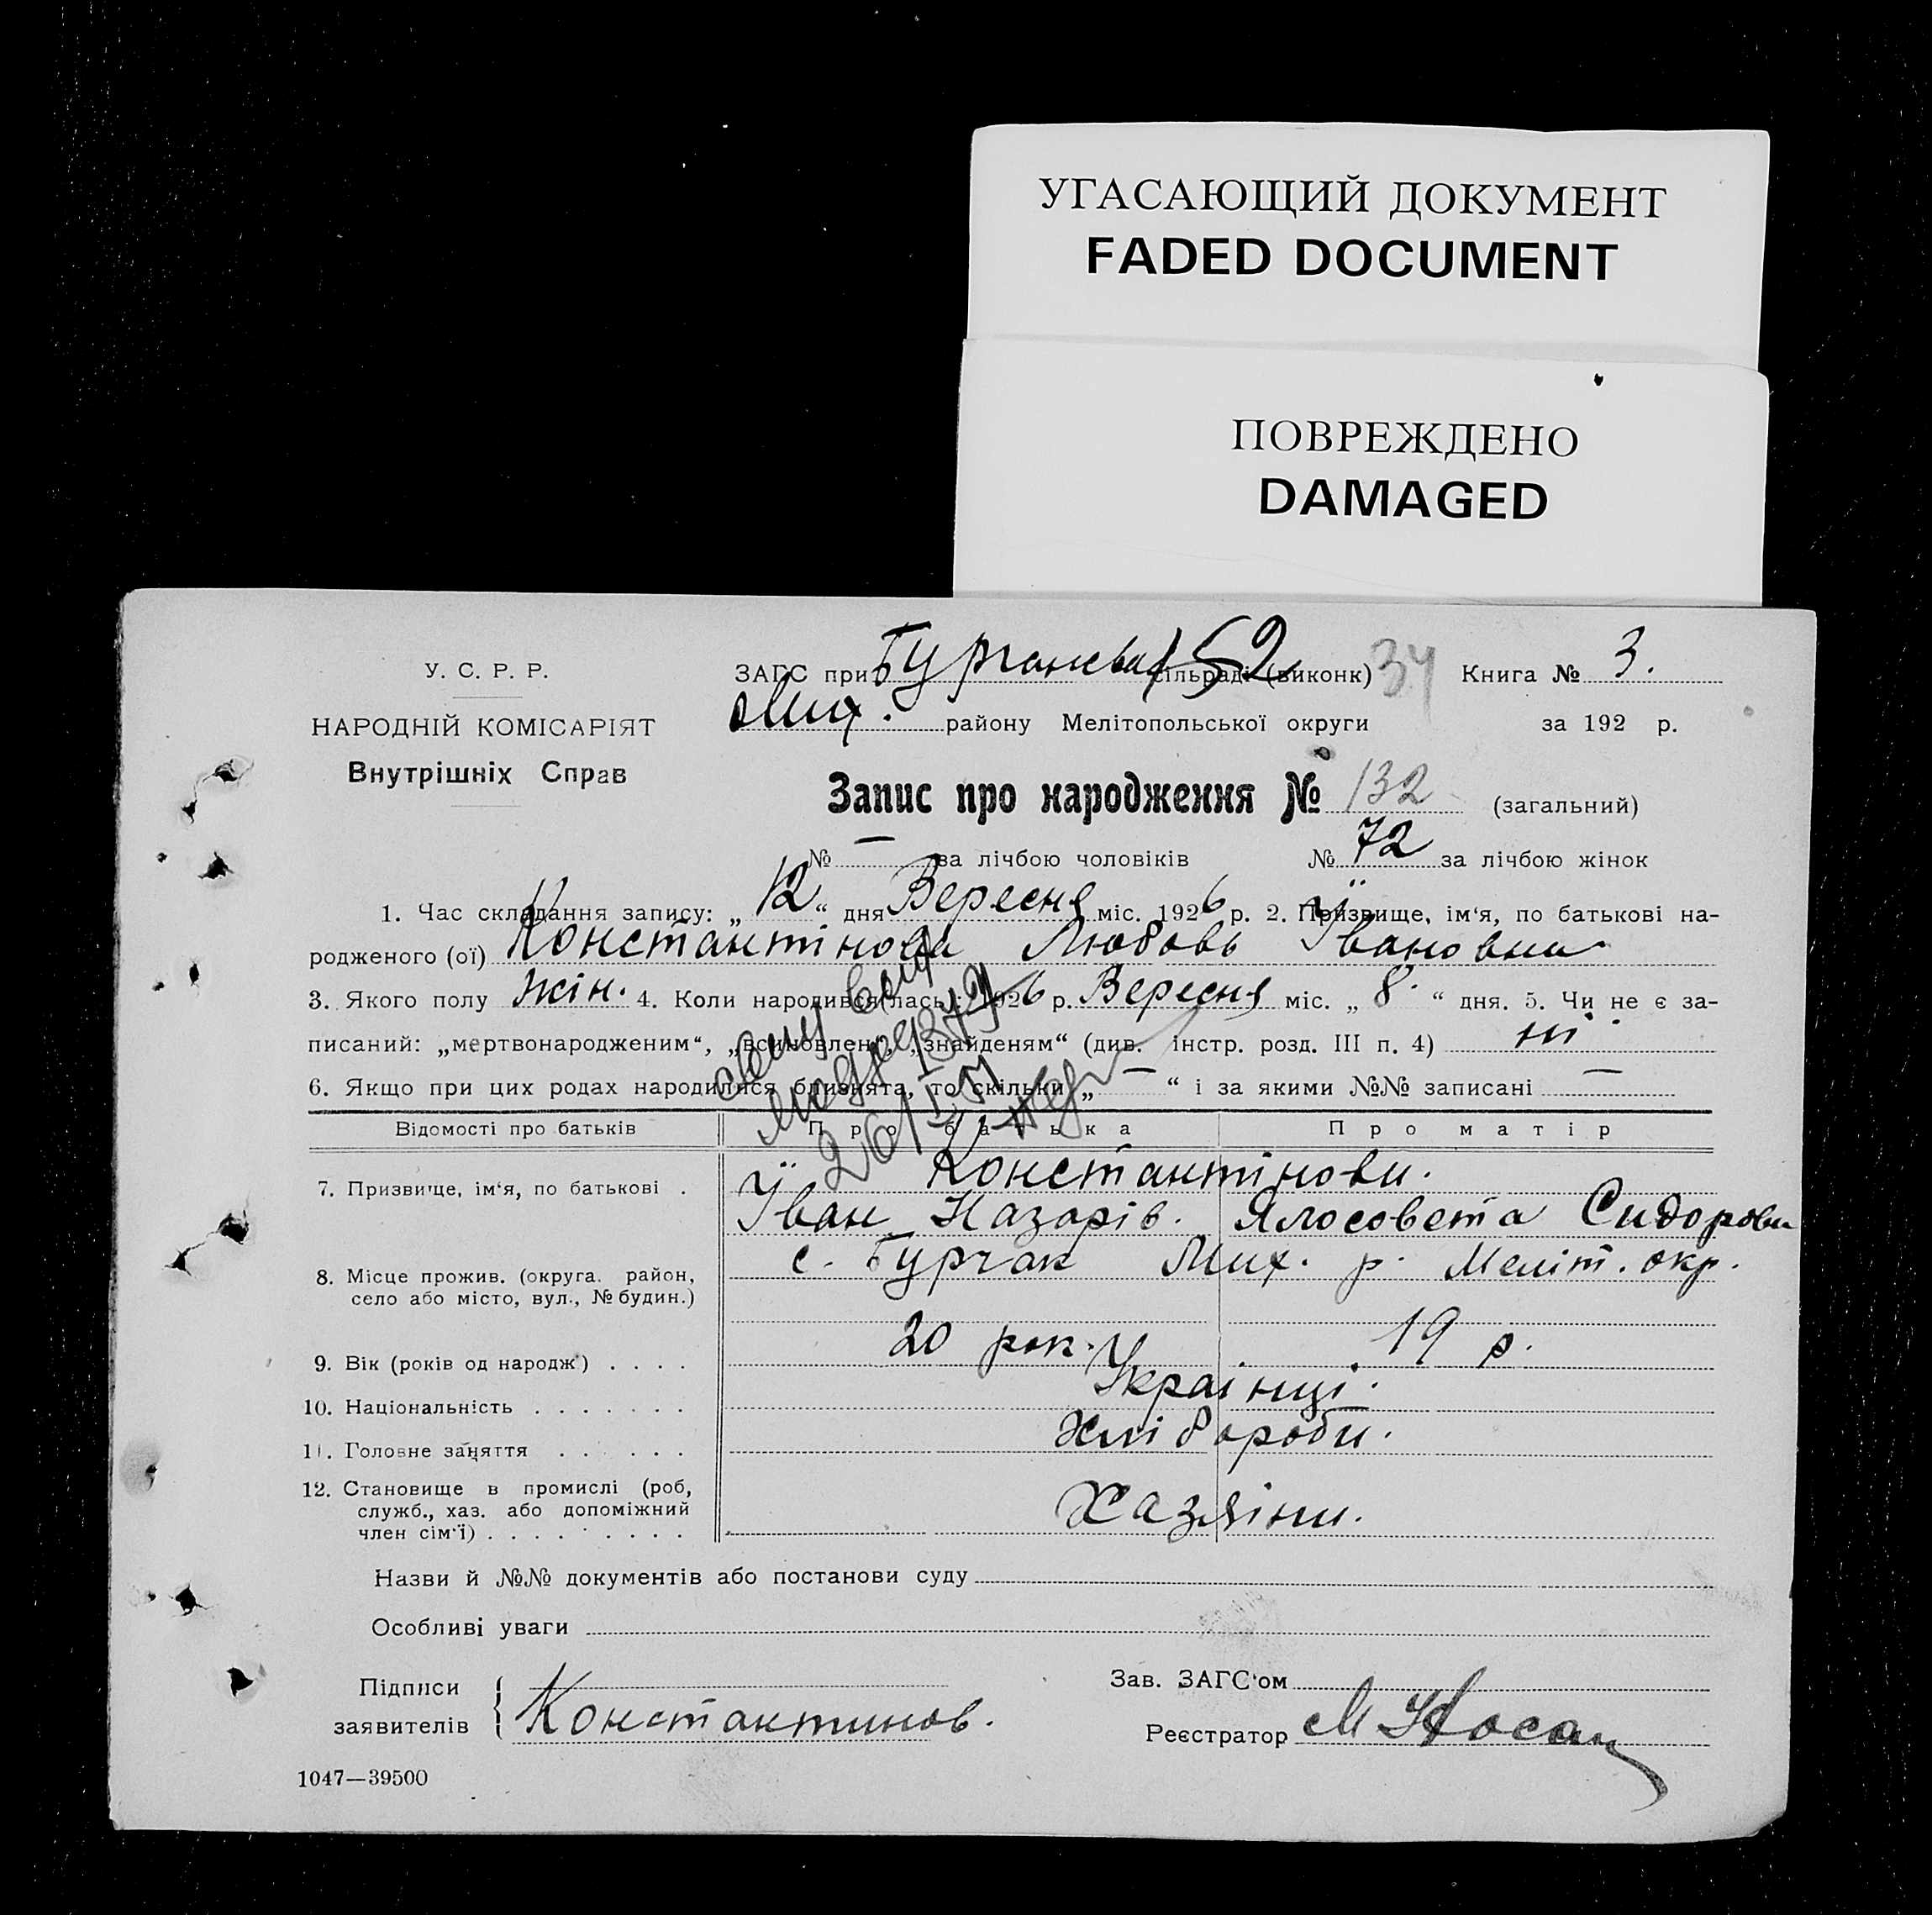 УГАСАЮЩИЙ ДОКУМЕНТ
FADED DOCUMENT
ПОВРЕЖДЕНО
DAMAGED
У. С. Р. Р.
НАРОДНІЙ КОМІСАРІЯТ
Внутрішніх Справ
ЗАГС при сільраді (виконк) 34 Книга № 3.
52
Мих. району Мелітопольської округи за 192 р.
Запис про народження № 132 (загальний)
№ — за лічбою чоловіків № 72 за лічбою жінок
1. Час складання запису: „ 12 “ дня Вересня міс. 1926 р. 2. Призвище, ім‘я, по батькові на-
родженого (ої) Константінова Любовь Івановна
3. Якого полу жін. 4. Коли народився(лась): 1926 р. Вересня міс. „ 8. “ дня. 5. Чи не є за-
писаний: „мертвонародженим“, „всиновлено“, „знайденям“ (див. інстр. розд. III п. 4) ні
6. Якщо при цих родах народилися близнята, то скільки „ — “ і за якими №№ записані —
Відомості про батьків Про батька Про матір
7. Призвище, ім‘я, по батькові . Константінови.
Їван Назарів. Ялосовета Сидоровн
8. Місце прожив. (округа. район, село або місто, вул., № будин.) с. Бурчак Мих. р. Меліт. окр.
9. Вік (років од народж) . . . . 20 рок. 19 р.
10. Національність . . . . . . . Українці.
11. Головне заняття . . . . . . Хлібороби.
12. Становище в промислі (роб,
служб., хаз. або допоміжний
член сім‘ї) . . . . . . . . . Хазяїни.
Назви й №№ документів або постанови суду
Особливі уваги
Підписи
заявителів Константинов.
Зав. ЗАГС‘ом
Реєстратор М Носан
1047—39500